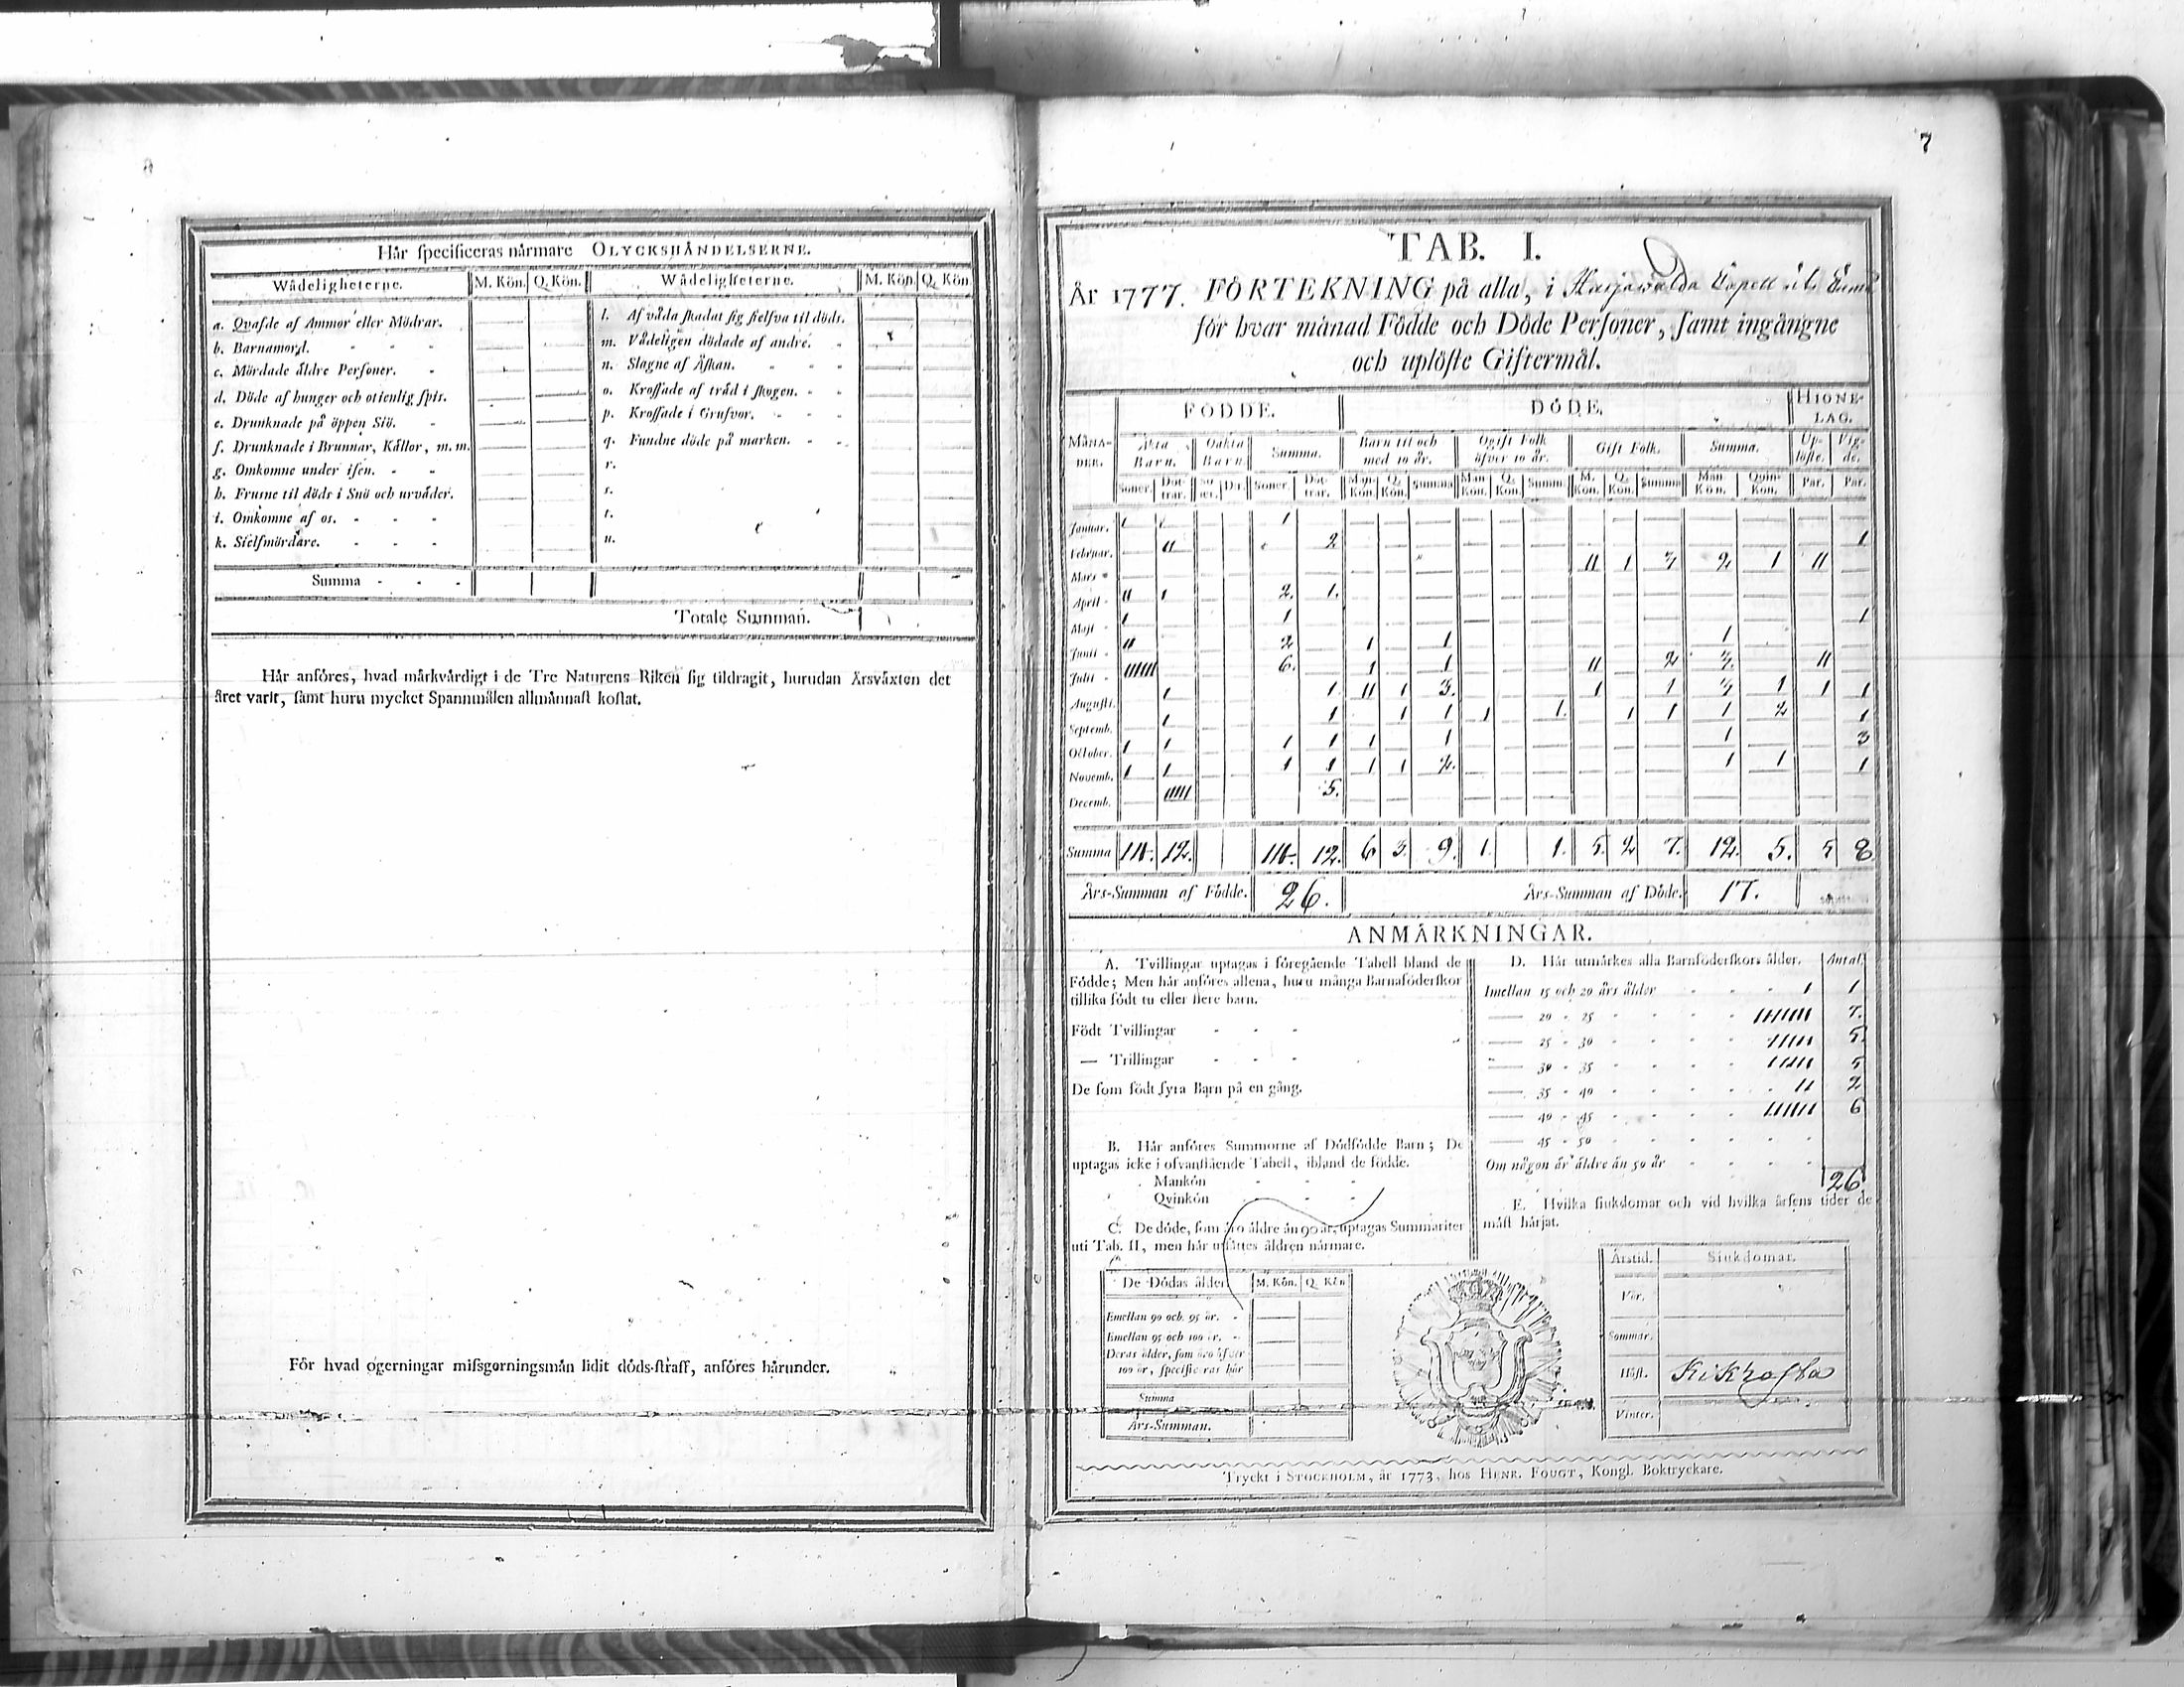 Här specificeras närmare OLYCKSHÄNDELSERNE.
Wådeligheterne. M. Kön. Q. Kön. Wådeligheterne. M. Kön. Q. Kön
a. Qvafde af Ammor eller Mödrar. l. Af våda skadat sig sielfva til döds.
b. Barnamord. m. Vådeligen dödade af andre.
c. Mördade äldre Personer. n. Slagne af Åskan.
d. Döde af hunger och otienlig spis. o. Krossade af träd i skogen.
e. Drunknade på öppen Siö. p. Krossade i Grufvor.
f. Drunknade i Brunnar, Källor, m. m. q. Fundne döde på marken.
g. Omkomne under isen. r.
h. Frusne til döds i Snö och urväder. s.
i. Omkomne af os. t.
k. Sielfmördare. u.
Summa
Totale Summan.
Här anföres, hvad märkvärdigt i de Tre Naturens Riken sig tildragit, hurudan Årsväxten det
året varit, samt huru mycket Spannmålen allmännast kostat.
För hvad ogerningar missgerningsmän lidit döds-straff, anföres härunder.
7
TAB. I.
År 1777. FÖRTEKNING på alla, i Capell
för hvar månad Födde och Döde Personer, samt ingångne
och uplöste Giftermål.
FÖDDE. DÖDE. HIONE-
LAG.
MÅNA-
DER. Äkta
Barn. Oäkta
Barn. Summa. Barn til och
med 10 år. Ogift Folk
öfver 10 år. Gift Folk. Summa. Up-
löste. Vig-
de.
Söner. Döt-
trar. Sö-
ner. Dr. Söner. Döt-
trar. Man-
Kön. Q.
Kön. Summa Man
Kön. Q.
Kön. Summ. M.
Kön. Q.
Kön. Summa Man
Kön. Qvin-
Kön. Par. Par.
Januar. 1 1
Februar. 11 2 1
Mars 11 1 3 2 1 11
April 11 1 2. 1.
Maji 1 1 1
Junii 11 2 1 1 1
Julii 111111 6. 1 1 11 2 3. 11
Augusti. 1 1. 11 1 3. 1 1 3 1 1 1
Septemb. 1 1 1 1 1 1. 1 1 1 2 1
October. 1 1 1 1 1 1 1 3
Novemb. 1 1 1 1 1 1 2. 1 1 1
Decemb. 11111 5.
Summa 14. 12. 14. 12. 6 3. 9. 1. 1. 5. 2 7. 12. 5. 5 8
Års-Summan af Födde. 26. Års-Summan af Döde. 17.
ANMÄRKNINGAR.
A. Tvillingar uptagas i föregående Tabell bland de
Födde; Men här anföres allena, huru många Barnaföderskor
tillika födt tu eller flere barn.
Födt Tvillingar
— Trillingar
De som födt fyra Barn på en gång.
B. Här anföres Summorne af Dödfödde Barn; De
uptagas icke i ofvanstående Tabell, ibland de födde.
Mankön
Qvinkön
C. De döde, som äro äldre än 90 år, uptagas Summariter
uti Tab. II, men här utsättes åldren närmare.
De Dödas ålder M. Kön. Q. Kön
Emellan 90 och 95 år.
Emellan 95 och 100 år.
Deras ålder, som äro öfver
100 år, specificeras här
Summa
Års-Summan.
D. Här utmärkes alla Barnföderskors ålder. Antal.
Imellan 15 och 20 års ålder 1 1
— 20 - 25 1111111 7.
— 25 - 30 11111 5.
— 30 - 35 11111 5
— 35 - 40 11 2
— 40 - 45 111111 6
— 45 - 50
Om någon är äldre än 50 år
26
E. Hvilka siukdomar och vid hvilka årsens tider de
mäst härjat.
Årstid. Siukdomar.
Vår.
Sommar.
Höst. Kikhosta
Vinter.
Tryckt i STOCKHOLM, år 1773, hos HENR. FOUGT, Kongl. Boktryckare.